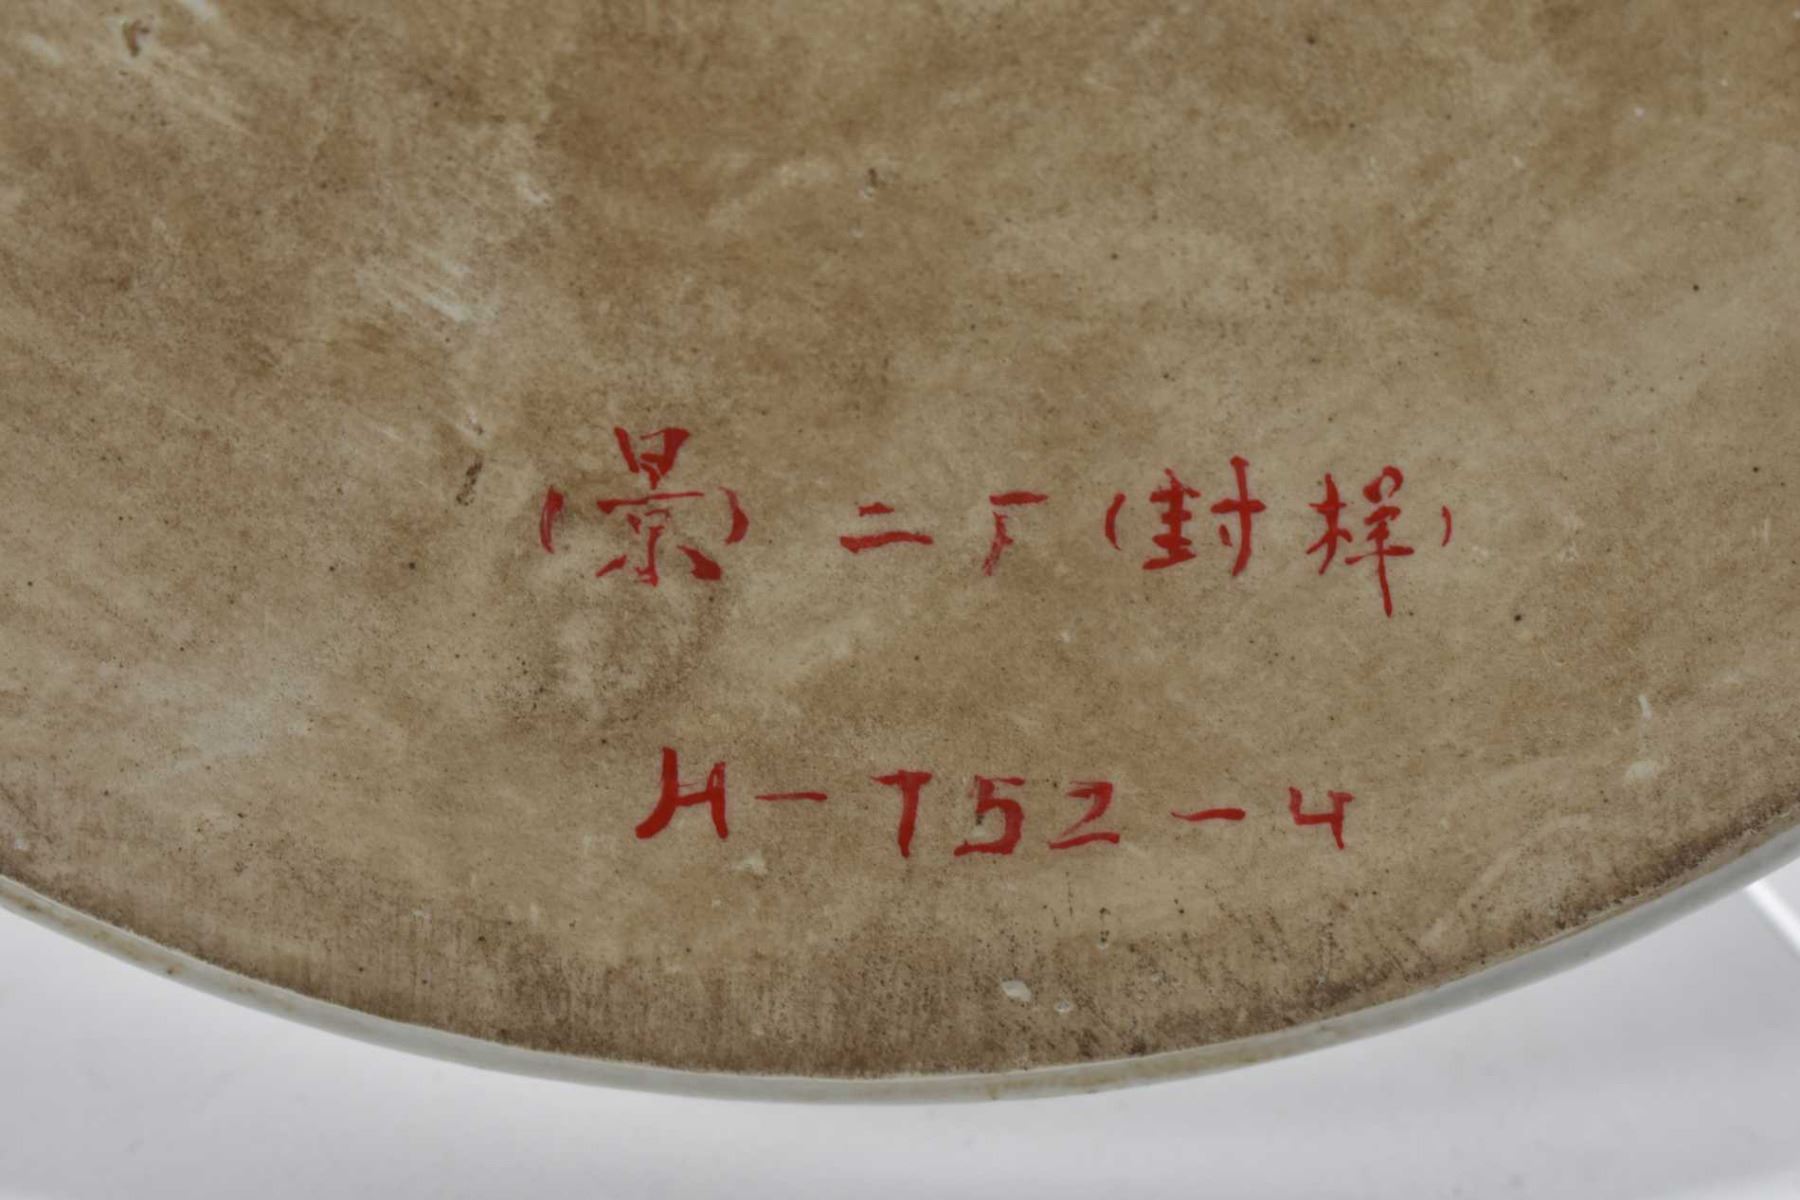 (景)二厂(封样)
H-T52-4